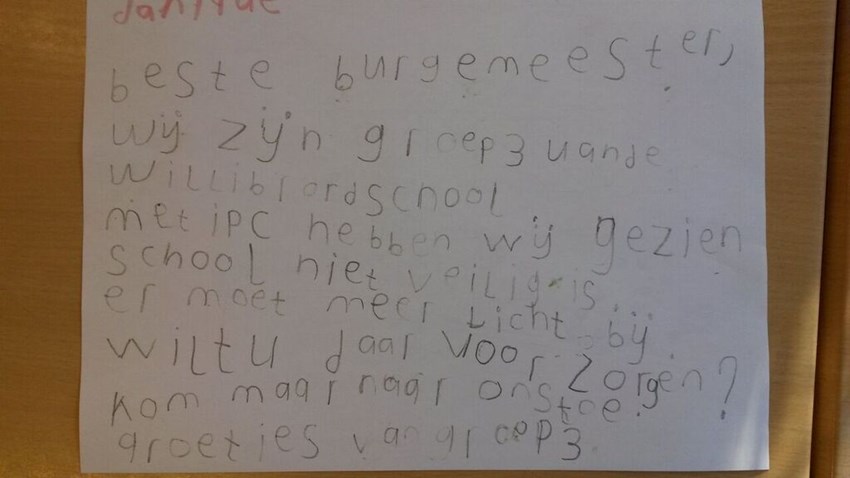 beste burgemeester,
wij zijn groep3 vande
Willibrordschool
met iPC hebben wij gezien
school niet veilig is.
er moet meer Licht bij.
Wilt U daar voor Zorgen?
kom maar naar ons toe.
groetjes van groep3.